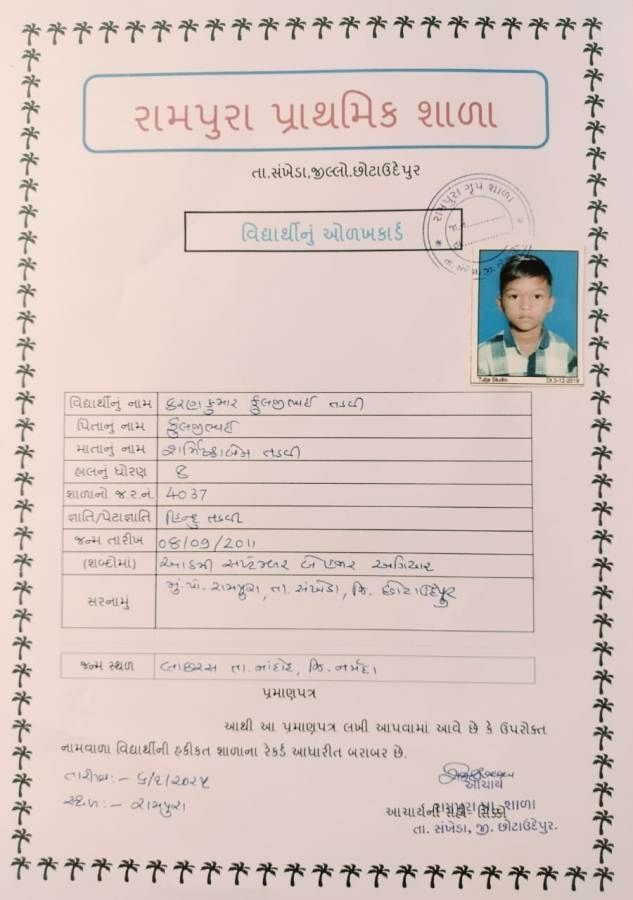 રામપુરા પ્રાથમિક શાળા
તા.સંખેડા,જીલ્લો.છોટાઉદેપુર
વિદ્યાર્થીનું ઓળખકાર્ડ
રામપુરા ગૃપ શાળા
Tulja Studio Dt.3-12-2019
વિદ્યાર્થીનું નામ કરણકુમાર ફુલજીભાઈ તડવી
પિતાનું નામ ફુલજીભાઈ
માતાનું નામ શર્મિષ્ઠાબેન તડવી
હાલનું ધોરણ ૮
શાળાનો જ.ર.નં. 4037
જ્ઞાતિ/પેટાજ્ઞાતિ હિન્દુ તડવી
જન્મ તારીખ 08/09/2011
(શબ્દોમાં) આઠમી સપ્ટેમ્બર બે હજાર અગિયાર
સરનામું મું.પો. રામપુરા, તા. સંખેડા, જિ. છોટાઉદેપુર
જન્મ સ્થળ લાછરસ તા.નાંદોદ, જિ. નર્મદા
પ્રમાણપત્ર
આથી આ પ્રમાણપત્ર લખી આપવામાં આવે છે કે ઉપરોક્ત
નામવાળા વિદ્યાર્થીની હકીકત શાળાના રેકર્ડ આધારીત બરાબર છે.
તારીખ:-
સ્થળ:- રામપુરા
આચાર્ય
આચાર્યની સહી સિક્કો
રામપુરા પ્રા. શાળા
તા. સંખેડા, જી. છોટાઉદેપુર.